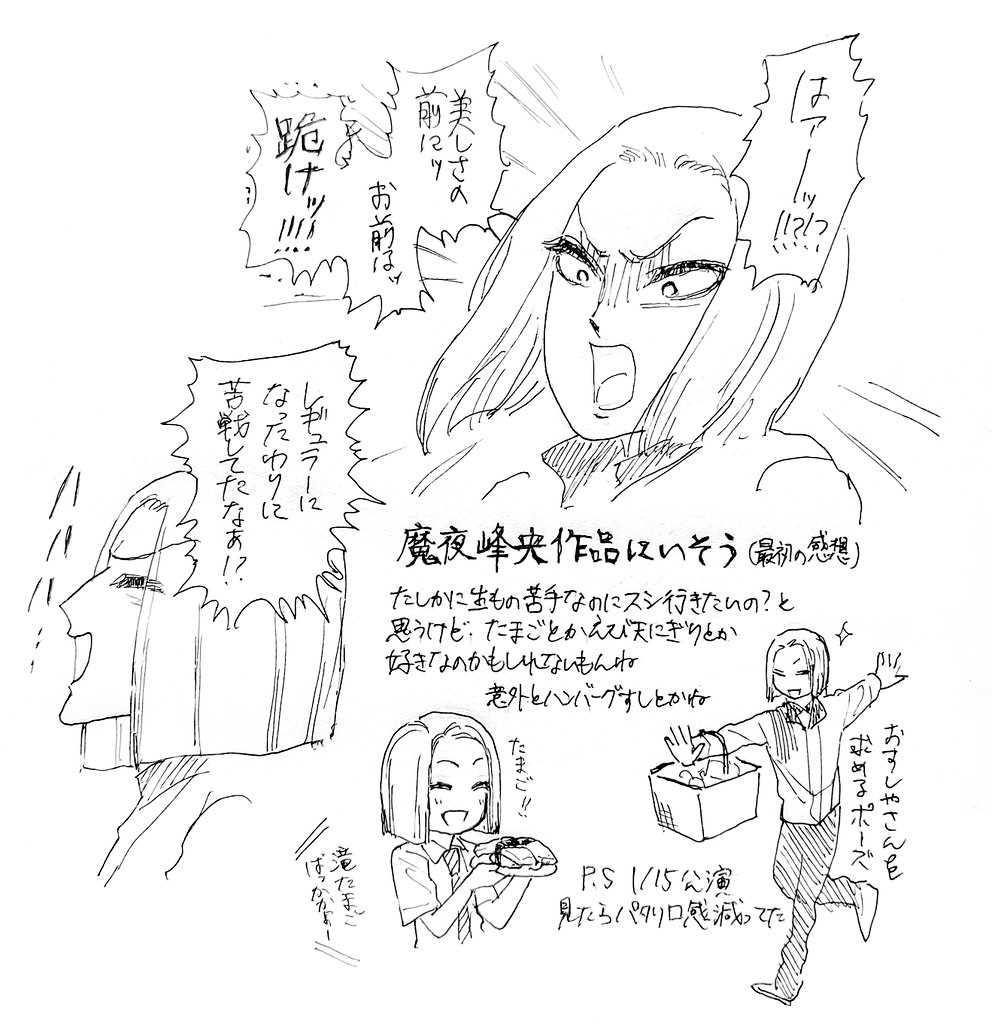 はァーッ!!?!?
美しさの
前にッ
お前はッ
跪けッ!!!!
レギュラーに
なったわりに
苦戦してたなぁ!?
魔夜峰央作品にいそう(最初の感想)
たしかに生もの苦手なのにスシ行きたいの?と
思うけど、たまごとかえび天にぎりとか
好きなのかもしれないもんね
意外とハンバーグすしとかね
たまご!!
滝たまご
ばっかかよー
おすしやさんを
求めるポーズ
P.S 1/15公演
見たらパタリロ感減ってた